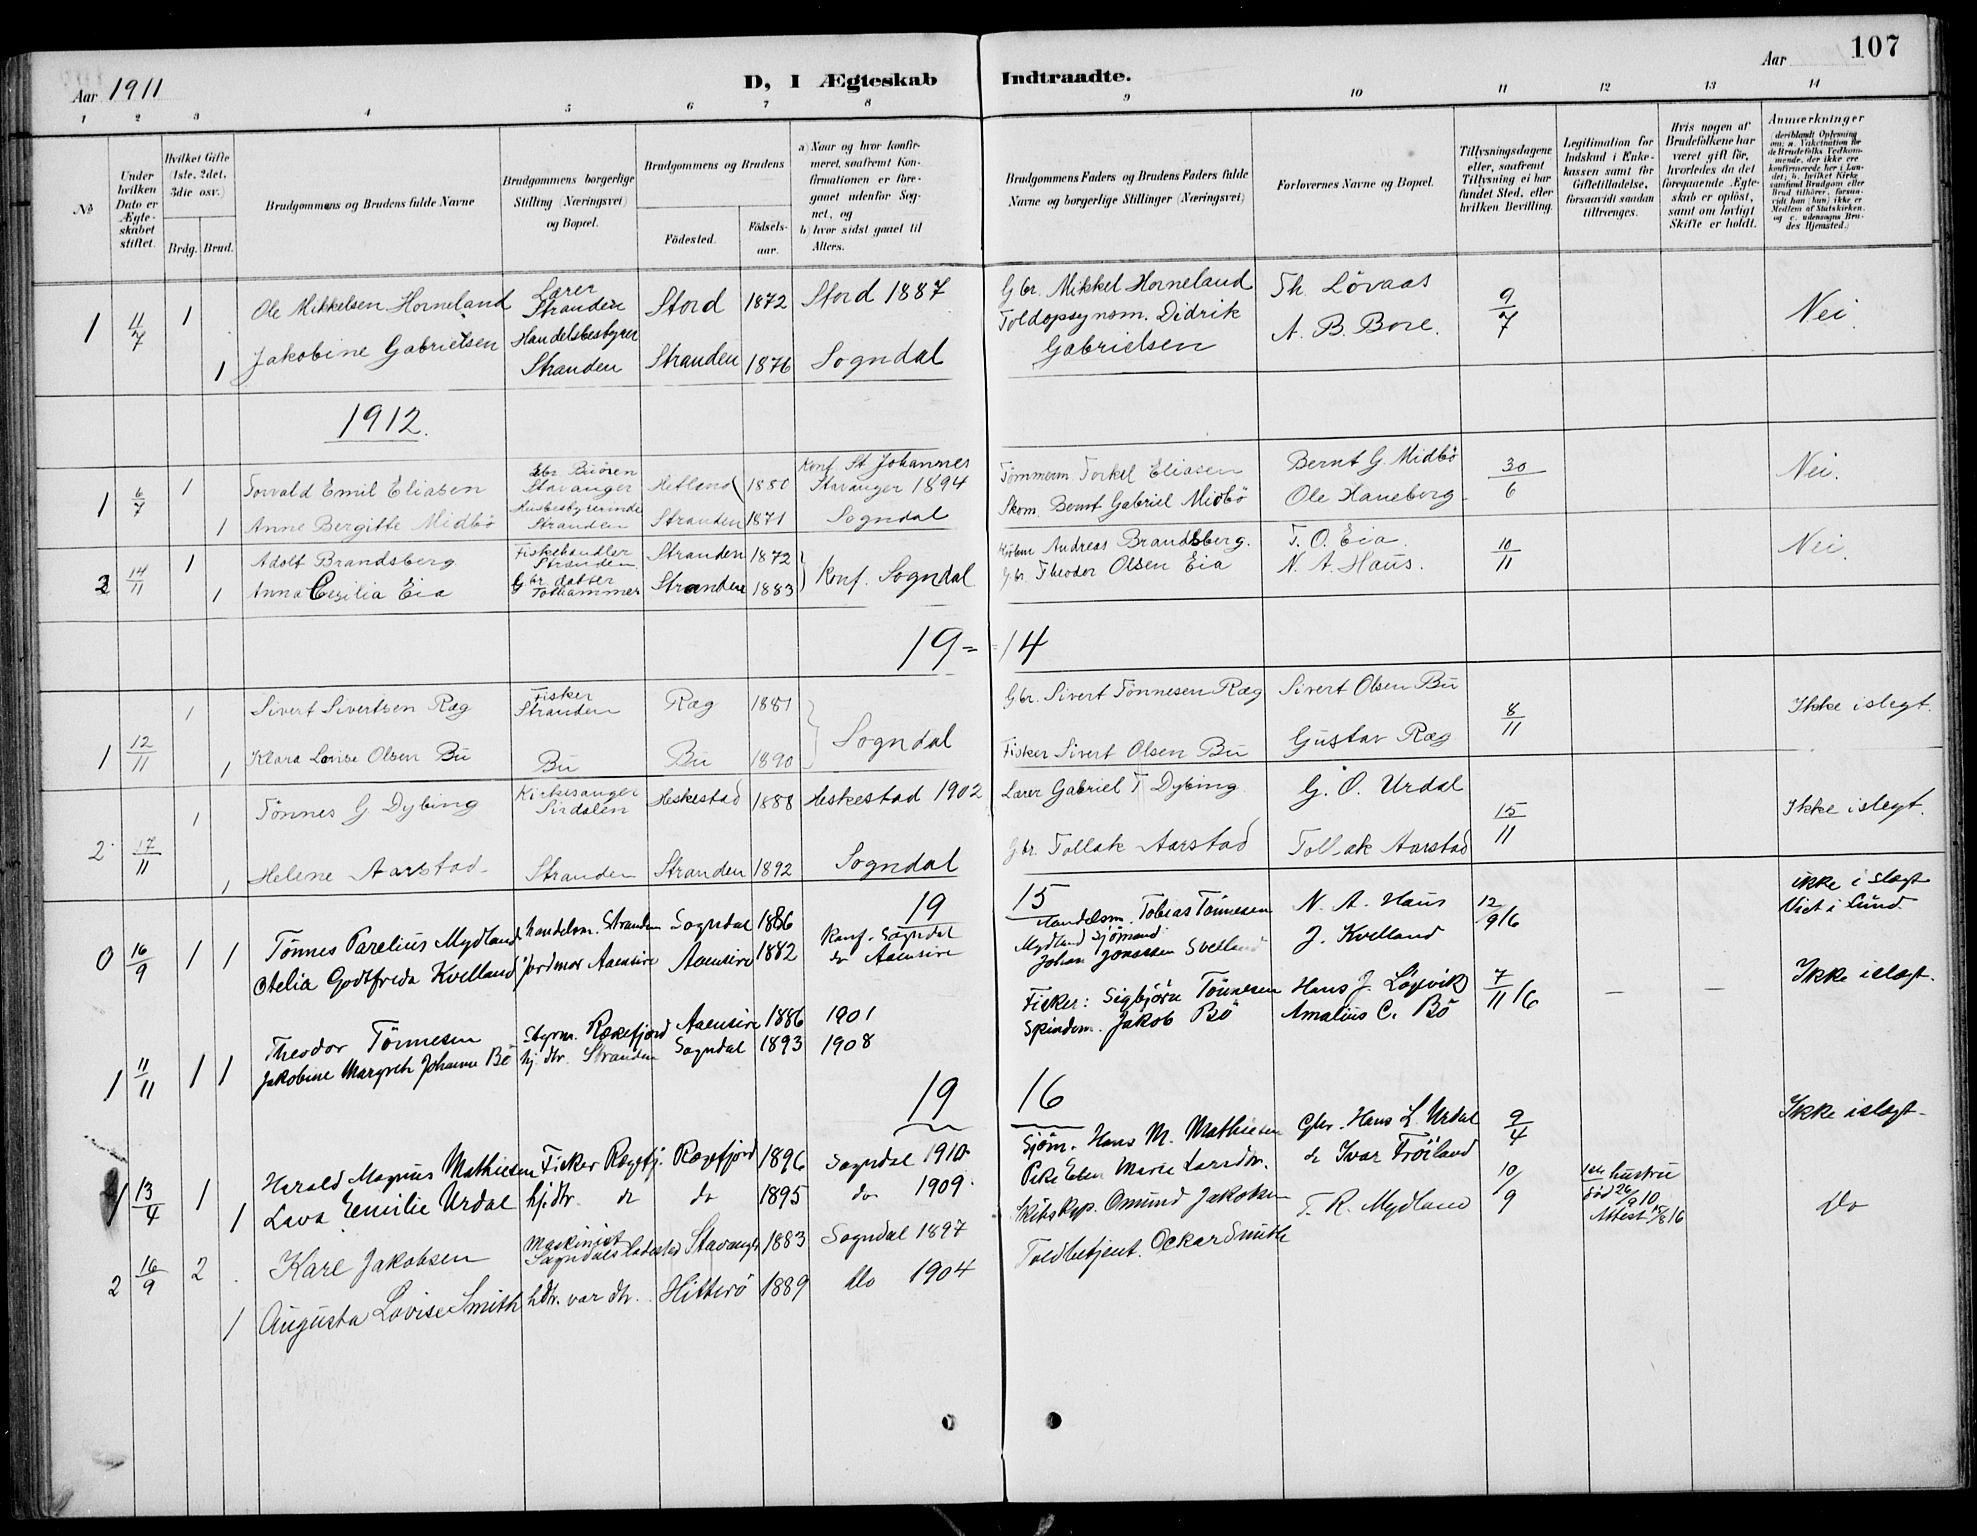 107
Aar 1911
D, I Ægteskab Indtraadte.
Aar
1 2 3 4 5 6 7 8 9 10 11 12 13 14
№
Under hvilken Dato er Ægteskabet stiftet.
Hvilket Gifte (1ste, 2det, 3die osv.)
Brdg. Brud.
Brudgommens og Brudens fulde Navne
Brudgommens borgerlige Stilling (Næringsvei) og Bopæl.
Brudgommens og Brudens
Födested. Födselsaar.
a) Naar og hvor konfirmeret, saafremt Konfirmationen er foregaaet udenfor Sognet, og
b) hvor sidst gaaet til Alters.
Brudgommens Faders og Brudens Faders fulde Navne og borgerlige Stillinger (Næringsvei)
Forlovernes Navne og Bopæl.
Tillysningsdagene eller, saafremt Tillysning ei har fundet Sted, efter hvilken Bevilling.
Legitimation for Indskud i Enkekassen samt for Giftetilladelse, forsaavidt saadan tiltrænges.
Hvis nogen af Brudefolkene har været gift för, hvorledes da det foregaaende Ægteskab er oplöst, samt om lovligt Skifte er holdt.
Anmærkninger (deriblandt Oplysning om: a. Vakcination for de Brudefolks Vedkommende, der ikke ere konfirmerede her i Landet; b. hvilket Kirkesamfund Brudgom eller Brud tilhörer, forsaavidt han (hun) ikke er Medlem af Statskirken, og c. udensogns Brudes Hjemsted.)
1 11/7 1 Ole Mikkelsen Horneland Lærer Stranden Stord 1872 Stord 1887 Gbr. Mikkel Horneland Th. Lövaas 9/7 Nei.
1 Jakobine Gabrielsen Handelsbestyrer Stranden Stranden 1876 Sogndal Toldopsynsm. Didrik Gabrielsen A. B. Bore.
1912.
1 6/7 1 Torvald Emil Eliasen Stavanger Hetland 1880 Konf. St Johannes Stavanger 1894 Tömmerm. Torkel Eliasen Bernt G. Midbö 30/6 Nei.
1 Anne Bergitte Midbö Husbestyrerinde Stranden Stranden 1871 Sogndal Skom. Bernt Gabriel Midbö Ole Haneberg
2 14/11 1 Adolf Brandsberg Fiskehandler Stranden Stranden 1872 Konf. Sogndal Andreas Brandsberg. T. O. Eia. 10/11 Nei.
1 Anna Cecilia Eia Gbr. datter Stranden 1883 Gbr. Theodor Olsen Eia N. A. Haus.
19 = = 14
1 12/11 1 Sivert Sivertsen Ræg Fisker Stranden Ræg 1881 Sogndal Gbr. Sivert Tönnesen Ræg Sivert Olsen Bu 8/11 Ikke i slegt.
1 Klara Lovise Olsen Bu Bu Bu 1890 Fisker Sivert Olsen Bu Gustav Ræg
2 17/11 1 Tönnes G Dybing Kirkesanger Sirdalen Heskestad 1888 Heskestad 1902 Lærer Gabriel T Dybing G. O. Urdal 15/11 Ikke i slegt.
1 Helene Aarstad Stranden Stranden 1892 Sogndal Gbr. Tollak Aarstad Tollak Aarstad
19 15
0 16/9 1 1 Tönnes Parelius Mydland Handelsm. Stranden Sogndal 1886 Konf. Sogndal Handelsm. Tobias Tönnesen Mydland N. A. Haus 12/9 16 ikke i slægt Viet i Lund.
Otelia Godtfreda Kvelland Jordmor Aaensire Aaensire 1882 do Aaensire Sjömand Johan Jonassen J. Kvelland
1 11/11 1 1 Theodor Tönnesen Styrm. Rægefjord Aaensire 1886 1901 Fisker: Sigbjörn Tönnesen Hans J. Lögevik 7/11 16 — — Ikke i slægt.
Jakobine Margreth Johanne Bö hj. dtr. Stranden Sogndal 1893 1908 Jakob Bö Amalius C. Bö
19 16
1 13/4 1 Harald Magnus Mathiesen Fisker Rægefj. Rægefjord 1896 Sogndal 1910 Sjöm. Hans M. Mathiesen Gbr. Hans L. Urdal 9/4 Ikke i slægt
1 Lava Emilie Urdal hj. dtr. do do 1895 do 1909 Pike Elen Marie Larsdtr. do Ivar Tröiland
2 16/9 2 Karl Jakobsen Maskinist Sogndals ladested Stavanger 1883 Sogndal 1897 Skibskap. Omund Jakobsen T. R. Mydland 10/9 1ste hustru död 26/9 10 Attest 15/8 16 Do
1 Augusta Lovise Smith Hitterö 1889 Do 1904 Toldbetjent. Oskar Smith